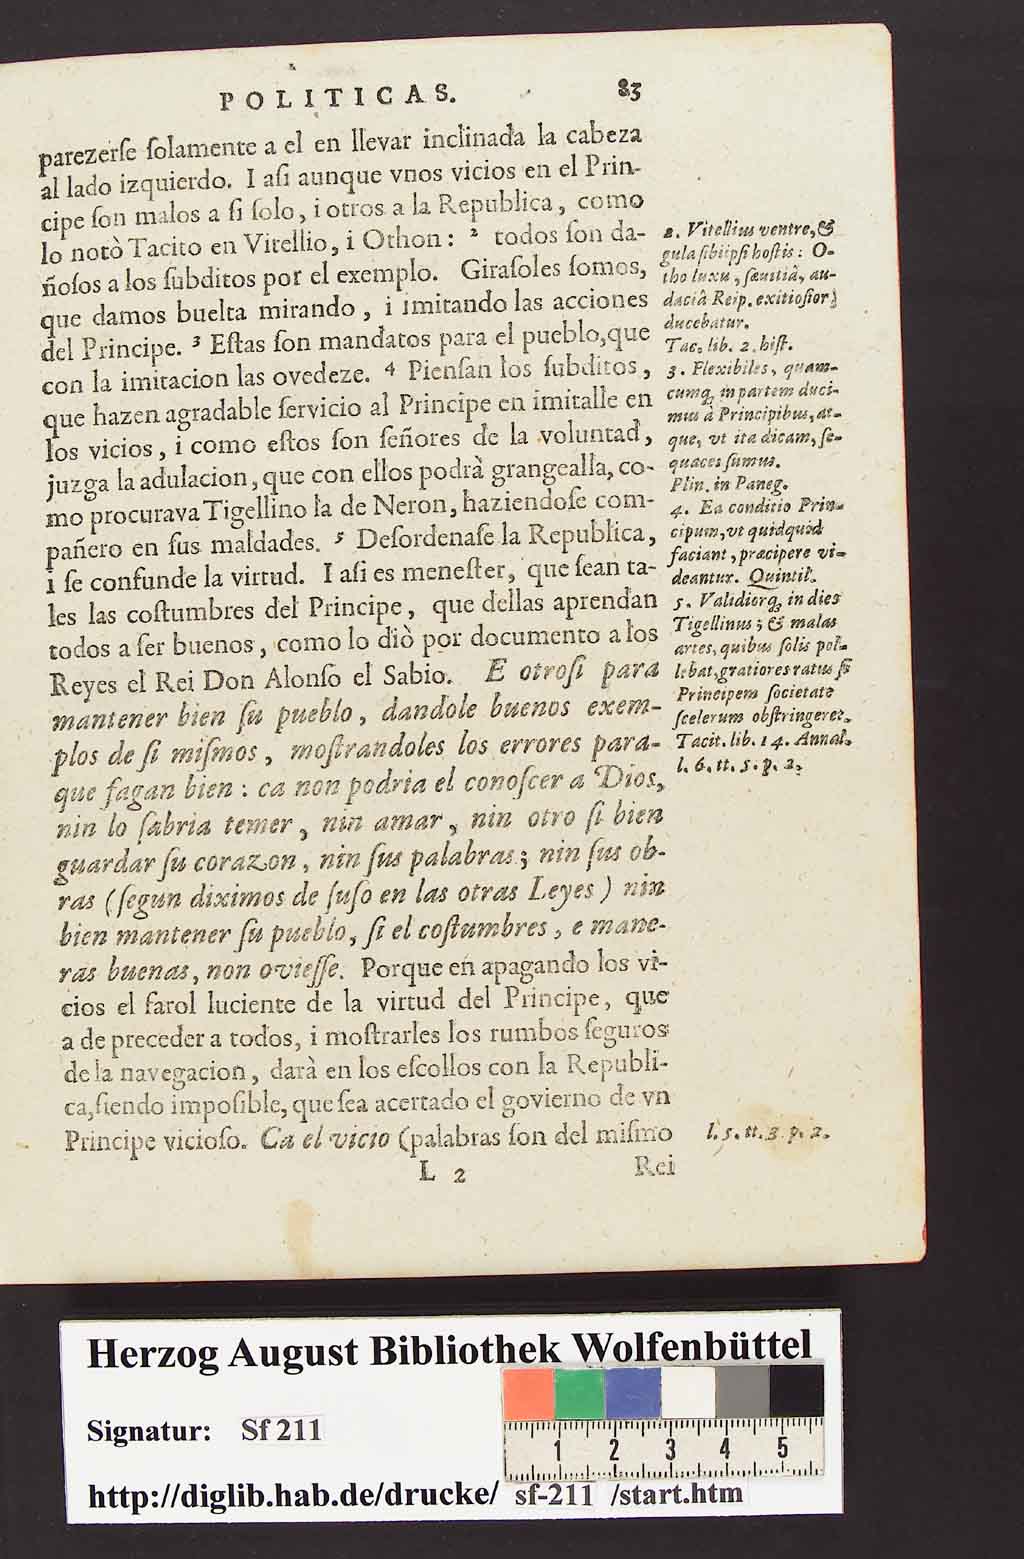 POLITICAS. 83
parezerſe ſolamente a el en llevar inclinada la cabeza
al lado izquierdo. I aſi aunque vnos vicios en el Prin-
cipe ſon malos a ſi ſolo, i otros a la Republica, como
lo notò Tacito en Vitellio, i Othon: ² todos ſon da-
ñoſos a los ſubditos por el exemplo. Giraſoles ſomos,
que damos buelta mirando, i imitando las acciones
del Principe. ³ Eſtas ſon mandatos para el pueblo, que
con la imitacion las ovedeze. ⁴ Pienſan los ſubditos,
que hazen agradable ſervicio al Principe en imitalle en
los vicios, i como eſtos ſon ſeñores de la voluntad,
juzga la adulacion, que con ellos podrà grangealla, co-
mo procurava Tigellino la de Neron, haziendoſe com-
pañero en ſus maldades. ⁵ Deſordenaſe la Republica,
i ſe confunde la virtud. I aſi es meneſter, que ſean ta-
les las coſtumbres del Principe, que dellas aprendan
todos a ſer buenos, como lo diò por documento a los
Reyes el Rei Don Alonſo el Sabio. E otroſi para
mantener bien ſu pueblo, dandole buenos exem-
plos de ſi miſmos, moſtrandoles los errores para-
que fagan bien: ca non podria el conoſcer a Dios,
nin lo ſabria temer, nin amar, nin otro ſi bien
guardar ſu corazon, nin ſus palabras; nin ſus ob-
ras (ſegun diximos de ſuſo en las otras Leyes) nin
bien mantener ſu pueblo, ſi el coſtumbres, e mane-
ras buenas, non ovieſſe. Porque en apagando los vi-
cios el farol luciente de la virtud del Principe, que
a de preceder a todos, i moſtrarles los rumbos ſeguros
de la navegacion, darà en los eſcollos con la Republi-
ca, ſiendo impoſible, que ſea acertado el govierno de vn
Principe vicioſo. Ca el vicio (palabras ſon del miſmo
L 2 Rei
2. Vitellius ventre, &
gula ſibi ipſi hoſtis: O-
tho luxu, ſævitiâ, au-
daciâ Reip. exitioſior
ducebatur.
Tac. lib. 2. hiſt.
3. Flexibiles, quam-
cumq, in partem duci-
mur à Principibus, at-
que, vt ita dicam, ſe-
quaces ſumus.
Plin. in Paneg.
4. Ea conditio Prin-
cipum, vt quidquid
faciant, præcipere vi-
deantur. Quintil.
5. Validiorq, in dies
Tigellinus; & malas
artes, quibus ſolis pol-
lebat, gratiores ratus ſi
Principem ſocietate
ſcelerum obſtringeret.
Tacit. lib. 14. Annal.
l. 6. tt. 5. p. 2.
l. 5. tt. 3. p. 2.
Herzog August Bibliothek Wolfenbüttel
Signatur: Sf 211
1 2 3 4 5
http://diglib.hab.de/drucke/ sf-211 /start.htm